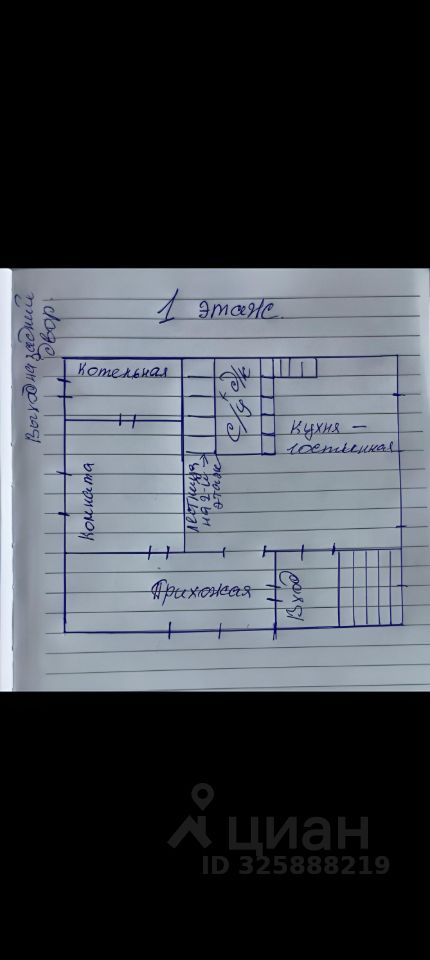 1 этаж.
Выход на задний
двор.
Котельная
С/у с д/к
Кухня -
гостинная
Комната
Лестница
на 2-й →
этаж
Прихожая
Вход
циан
ID 325888219